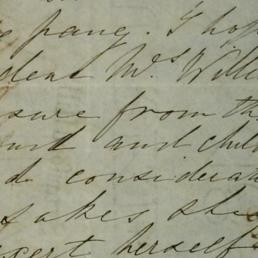 pang. I hop
dear Mrs Willi
sure from the
and chil
d consider
sakes she
exert herself